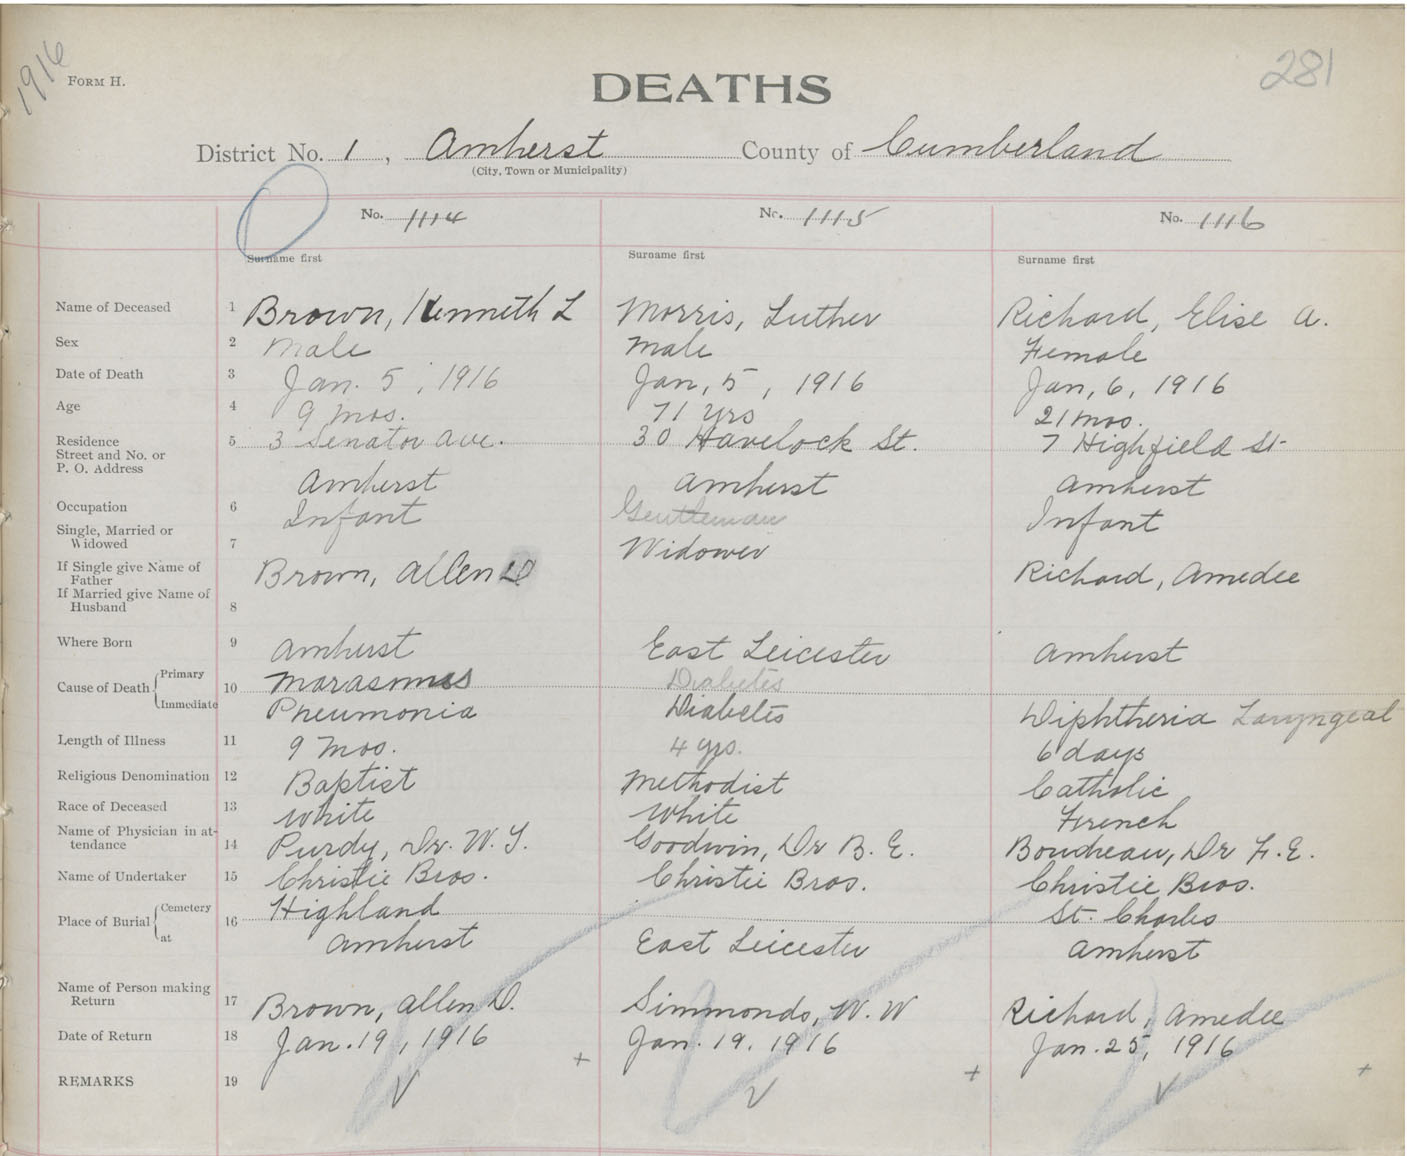 1916
Form H.
DEATHS
281
District No. 1, Amherst County of Cumberland
(City, Town or Municipality)
No. 1114 No. 1115 No. 1116
Surname first Surname first Surname first
Name of Deceased 1 Brown, Kenneth L Morris, Luther Richard, Elise A.
Sex 2 Male Male Female
Date of Death 3 Jan. 5, 1916 Jan, 5, 1916 Jan, 6, 1916
Age 4 9 mos. 71 yrs 21 mos.
Residence 5 3 Senator Ave. 30 Havelock St. 7 Highfield St
Street and No. or
P. O. Address Amherst Amherst Amherst
Occupation 6 Infant Gentleman Infant
Single, Married or
Widowed 7 Widower
If Single give Name of
Father Brown, Allen D Richard, Amedee
If Married give Name of
Husband 8
Where Born 9 Amherst East Leicester Amherst
Cause of Death Primary 10 Marasmus Diabetes
Immediate Pneumonia Diabetes Diphtheria Laryngeal
Length of Illness 11 9 mos. 4 yrs. 6 days
Religious Denomination 12 Baptist Methodist Catholic
Race of Deceased 13 White White French
Name of Physician in at-
tendance 14 Purdy, Dr. W. T. Goodwin, Dr B. E. Boudreau, Dr F. E.
Name of Undertaker 15 Christie Bros. Christie Bros. Christie Bros.
Place of Burial Cemetery 16 Highland St. Charles
at Amherst East Leicester Amherst
Name of Person making
Return 17 Brown, Allen D. Simmonds, W. W Richard, Amedee
Date of Return 18 Jan. 19, 1916 Jan. 19, 1916 Jan. 25, 1916
REMARKS 19